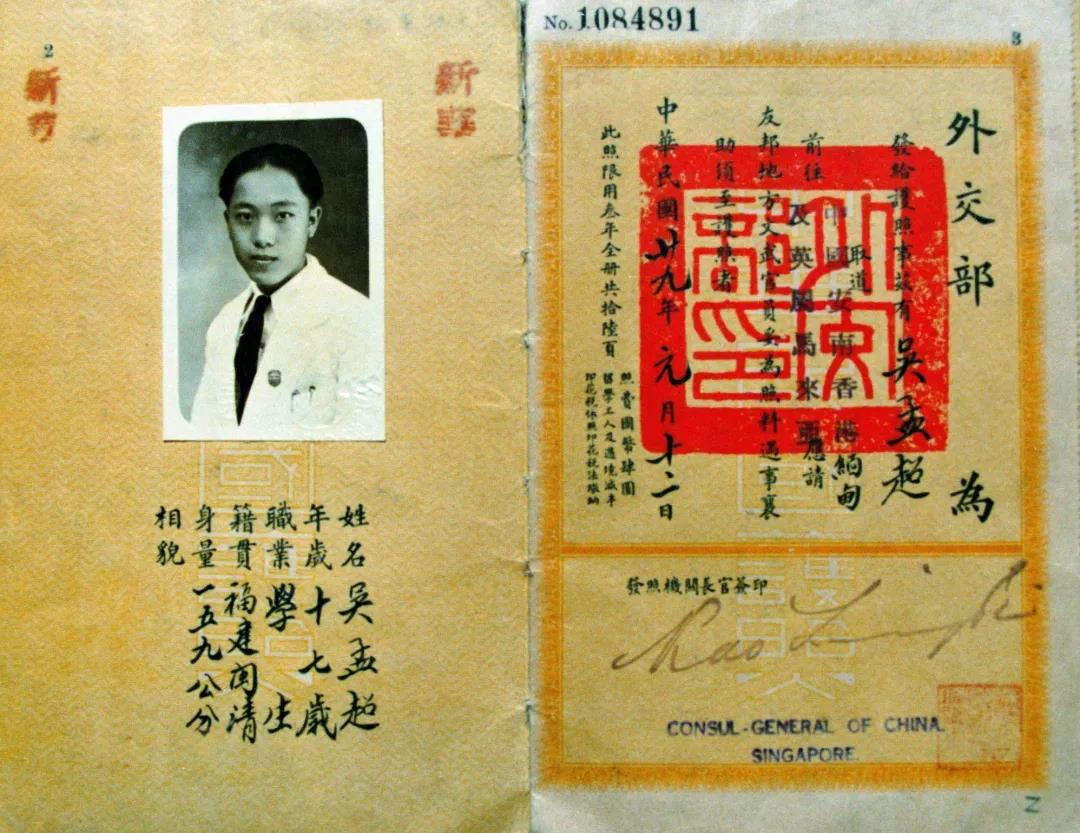 2
新
新
姓名吳孟超
年歲十七歲
職業學生
籍貫福建閩清
身量一五九公分
相貌
No. 1084891
3
外交部為
發給護照事茲有吳孟超
取道
中國安南香港緬甸
前往及英屬馬來亞應請
友邦地方文武官員妥為照料遇事襄
助須至護照者
中華民國廿九年元月十二日
此照限用叁年全冊共拾陸頁
照費國幣肆圓
學工人及過境減半
印花稅依照印花稅法繳納
發照機關長官簽印
CONSUL-GENERAL OF CHINA.
SINGAPORE.
Z